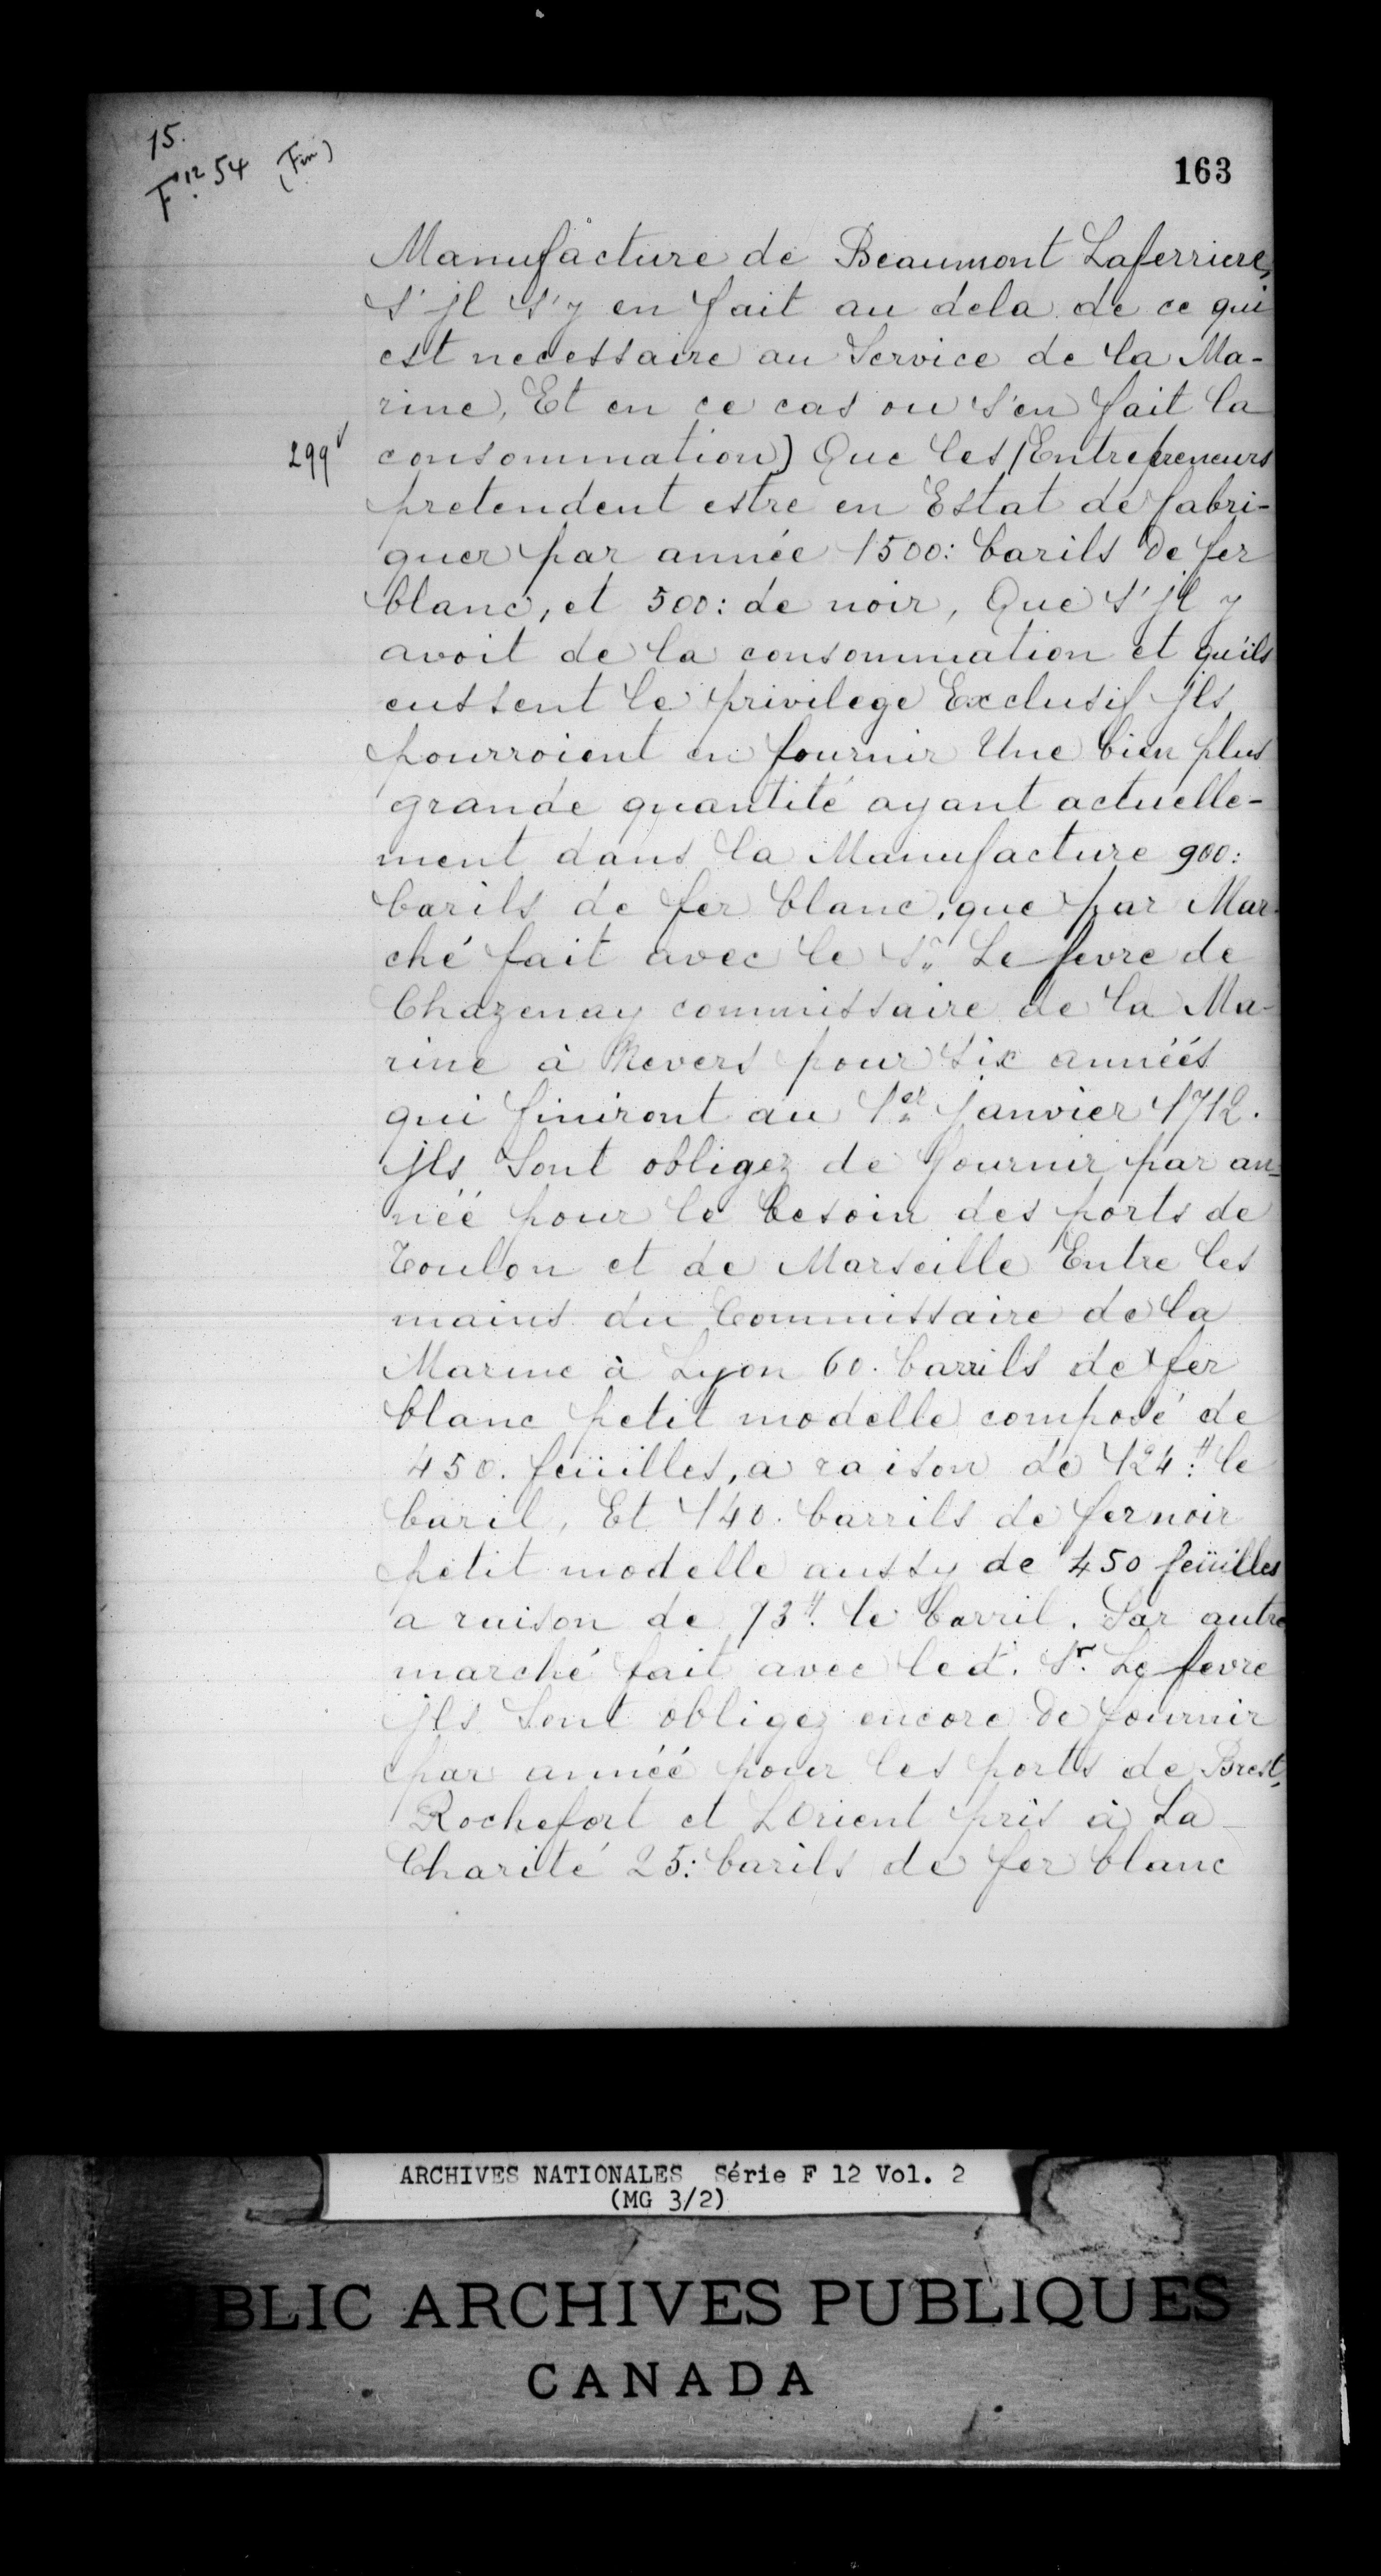 15.
F.12 54 (Fin)
163
Manufacture de Beaumont Laferriere,
s'jl s'y en fait au dela de ce qui
est necessaire au Service de la Ma-
rine, Et en ce cas ou s'en fait la
299v
consommation) Que les / Entrepreneurs
pretendent estre en Estat de fabri-
quer par année 1500: barils De fer
blanc, et 500: de noir, Que s'jl y
avoit de la consommation et qu'ils
eussent le privilege Exclusif jls
pourroient en fournir Une bien plus
grande quantité ayant actuelle-
ment dans la Manufacture 900:
barils de fer blanc, que par Mar-
ché fait avec le Sr. Le fevre de
Chazenay commissaire de la Ma-
rine à Nevers pour six années
qui finiront au 1er Janvier 1712.
jls Sont obligez de fournir par an-
néé pour le besoin des ports de
Toulon et de Marseille Entre les
mains du Commissaire de la
Marine à Lyon 60. barrils de fer
blanc petit modelle composé de
450. feüilles, a raison de 124:# le
baril, Et 140. barrils de fer noir
petit modelle aussy de 450 feüilles
a raison de 73#. le barril. Par autre
marché fait avec led. Sr. Le fevre
jls Sont obligez encore De fournir
par annéé pour les ports de Brest,
Rochefort et LOrient pris à La
Charité 25: barils de fer blanc
ARCHIVES NATIONALES Série F 12 Vol. 2
(MG 3/2)
BLIC ARCHIVES PUBLIQUES
CANADA